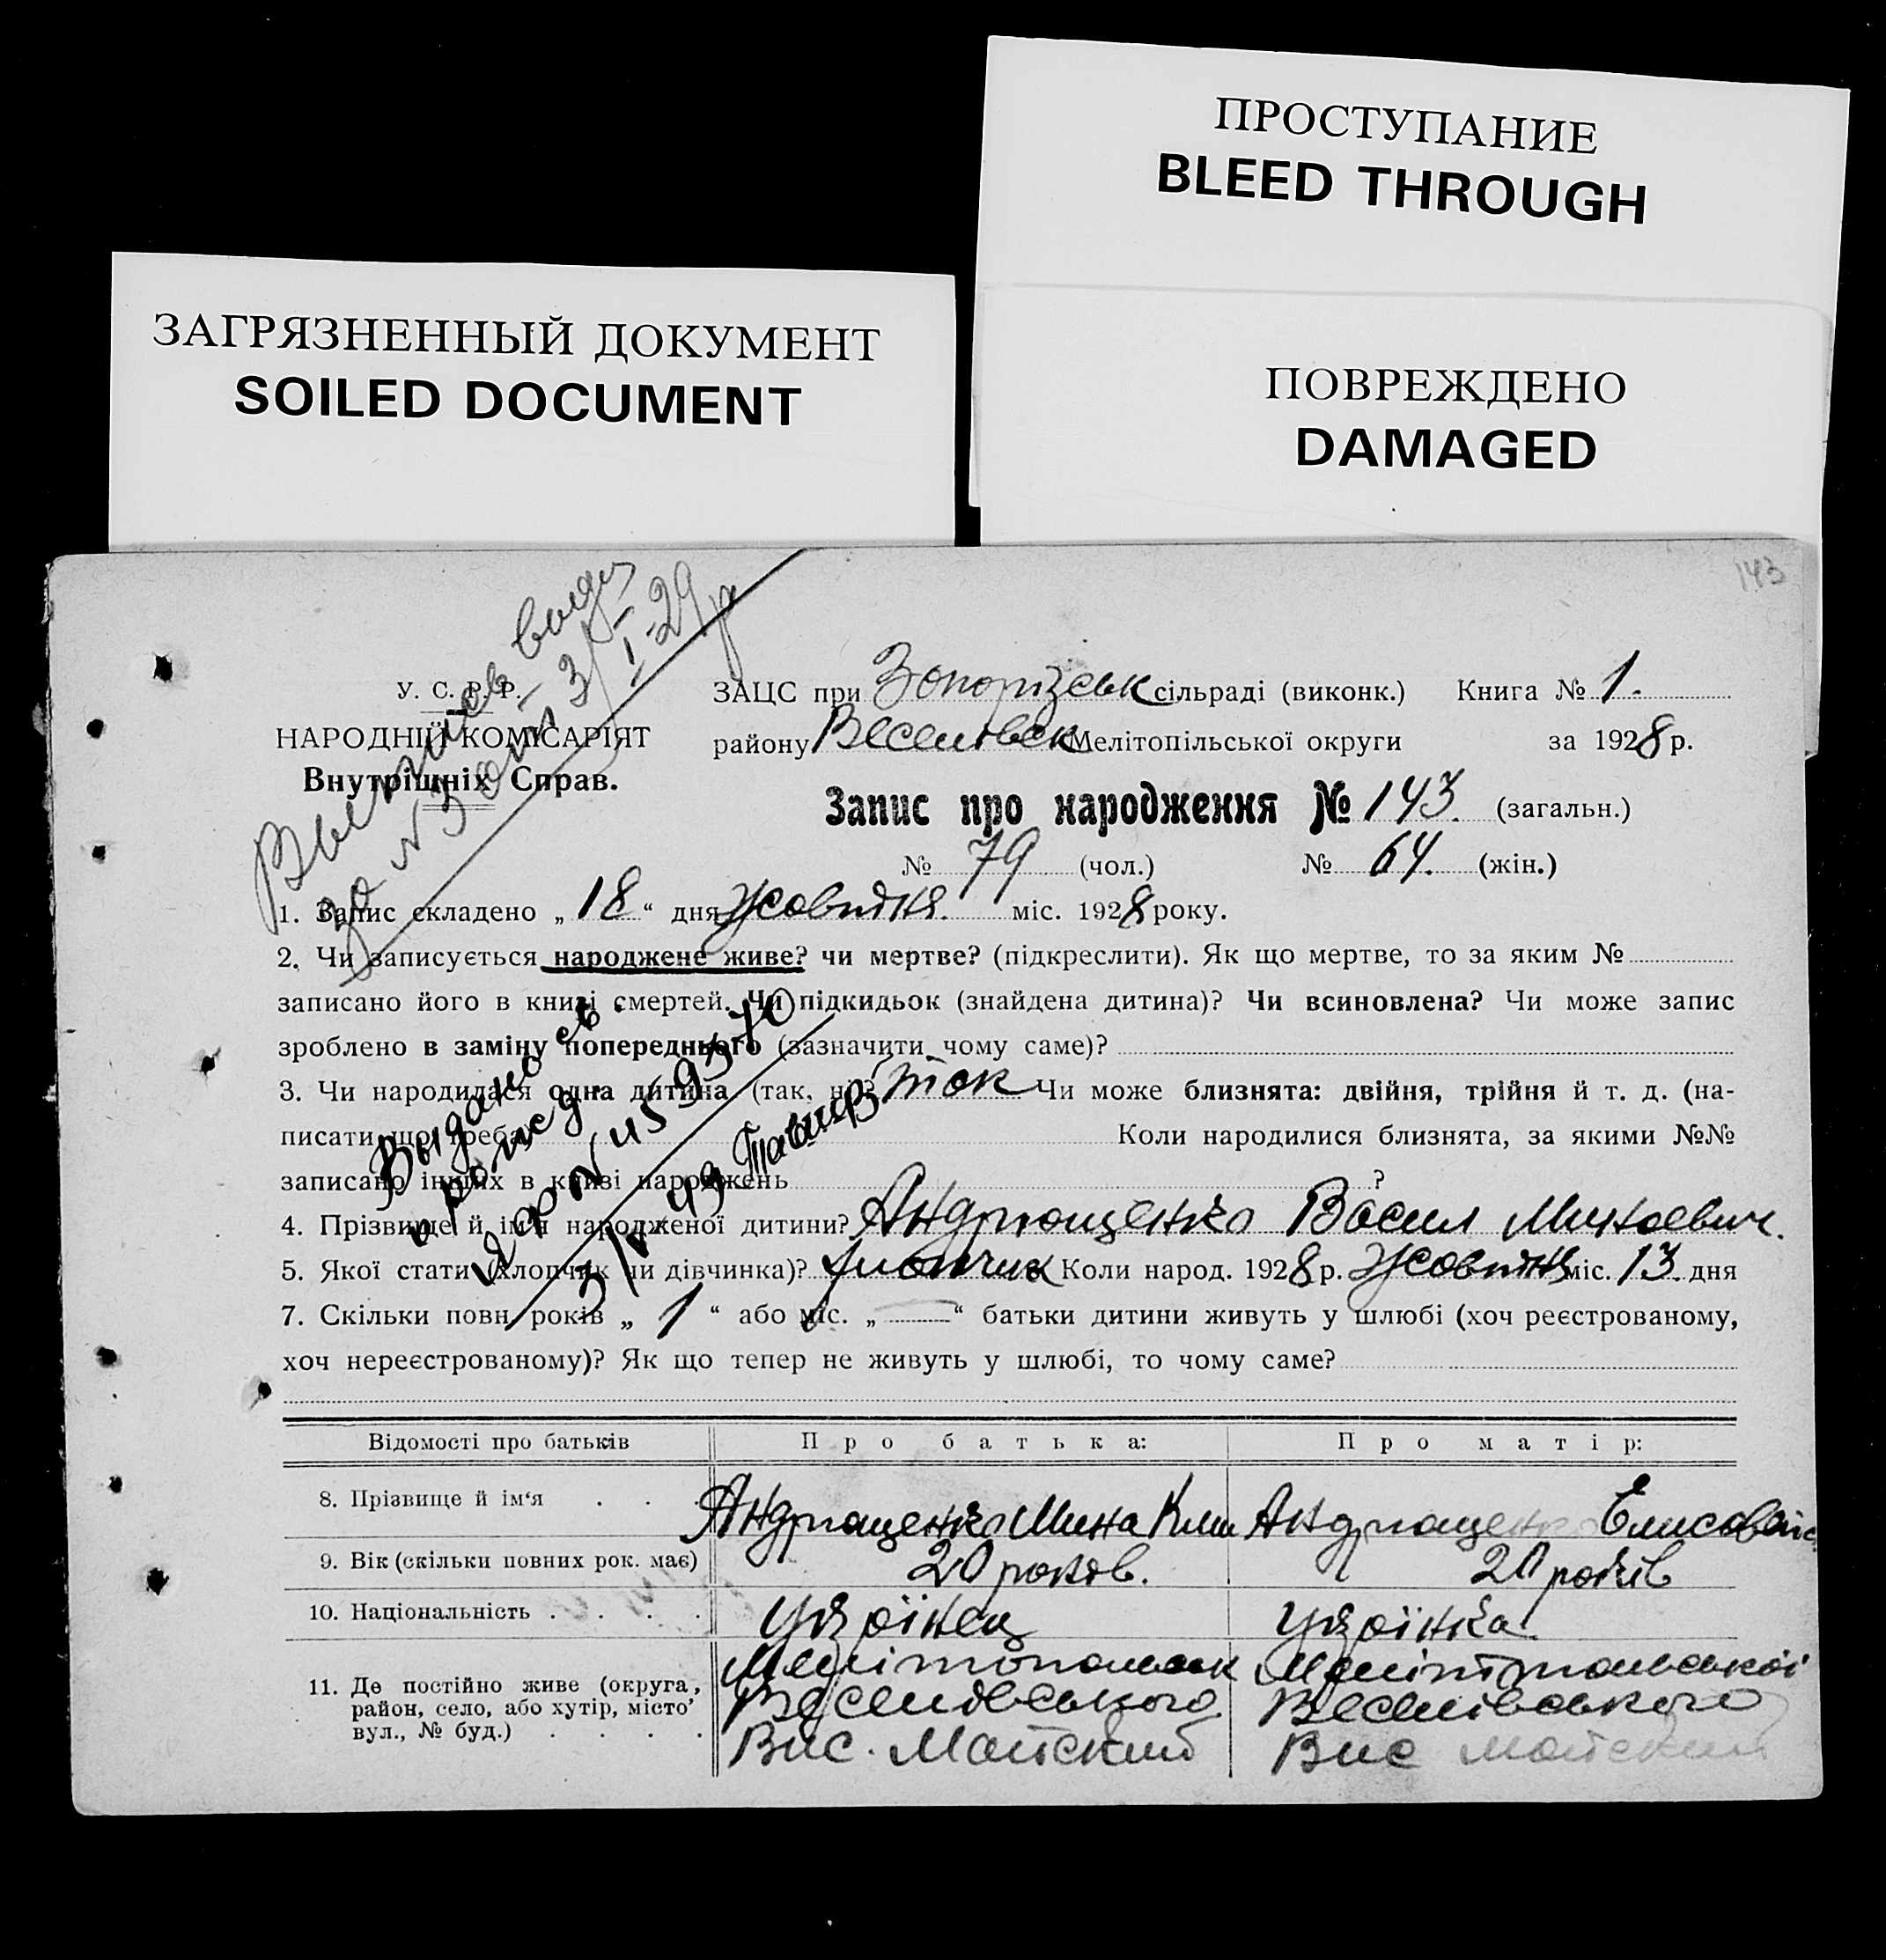 ПРОСТУПАНИЕ
BLEED THROUGH
ЗАГРЯЗНЕННЫЙ ДОКУМЕНТ
SOILED DOCUMENT
ПОВРЕЖДЕНО
DAMAGED
143
У. С. Р. Р.
НАРОДНІЙ КОМІСАРІЯТ
Внутрішніх Справ.
ЗАЦС при Запоризськ сільраді (виконк.) Книга № 1.
району Веселівськ Мелітопільської округи за 1928 р.
Запис про народження № 143. (загальн.)
№ 79 (чол.) № 64. (жін.)
1. Запис складено „ 18 “ дня Жовтня. міс. 1928 року.
2. Чи записується народжене живе? чи мертве? (підкреслити). Як що мертве, то за яким №
записано його в книзі смертей. Чи підкидьок (знайдена дитина)? Чи всиновлена? Чи може запис
зроблено в заміну попереднього (зазначити чому саме)?
3. Чи народилася одна дитина (так, ні)? так Чи може близнята: двійня, трійня й т. д. (на-
писати що треба) Коли народилися близнята, за якими №№
записано інших в книзі народжень ?
4. Прізвище й ім'я народженої дитини? Андрющенко Васил Минаевич.
5. Якої стати (хлопчик чи дівчинка)? хлопчик Коли народ. 1928 р. Жовтня міс. 13. дня
7. Скільки повн. років „ 1 “ або міс. „ — “ батьки дитини живуть у шлюбі (хоч реєстрованому,
хоч нереєстрованому)? Як що тепер не живуть у шлюбі, то чому саме?
Відомості про батьків Про батька: Про матір:
8. Прізвище й ім'я Андрющенко Мина Клим Андрющенко Елисавета
9. Вік (скільки повних рок. має) 20 років. 20 років
10. Національність Українец Українка
11. Де постійно живе (округа, район, село, або хутір, місто, вул., № буд.)
Мелітопольськ Мелітопольської
Веселівського Веселівського
Вис. Майський Вис Майский